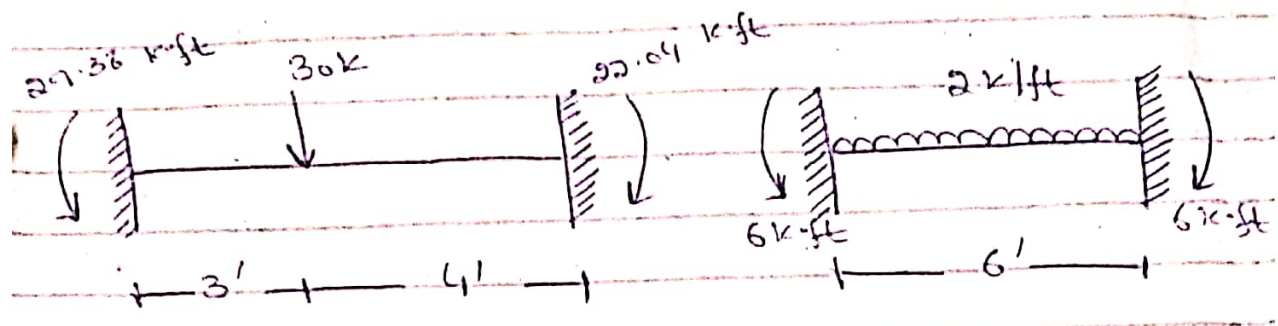 29.38 k·ft
30k
22.04 k·ft
2k/ft
6k·ft
6k·ft
3'
4'
6'